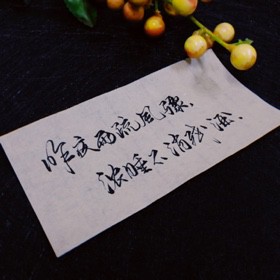 昨夜雨疏风骤、
浓睡不消残酒、